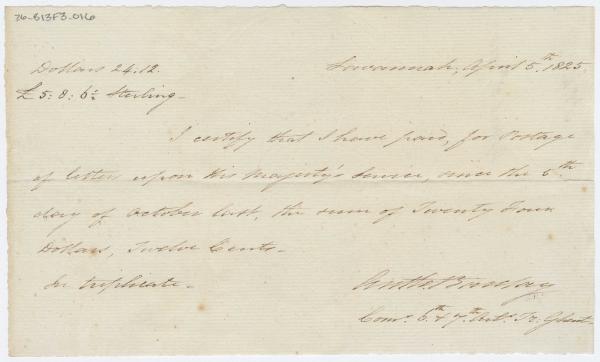 76-B13F3-016
Dollars 24.12. Savannah, April 5.th 1825.
£ 5: 8: 6½ Sterling.
I certify that I have paid, for Postage
of letters upon His Majesty's Service, since the 6th
day of October last, the sum of Twenty Four
Dollars, Twelve Cents.
In triplicate.
Anth. Barclay
Comr. 6th & 7th Arts. Tr. Ghent.